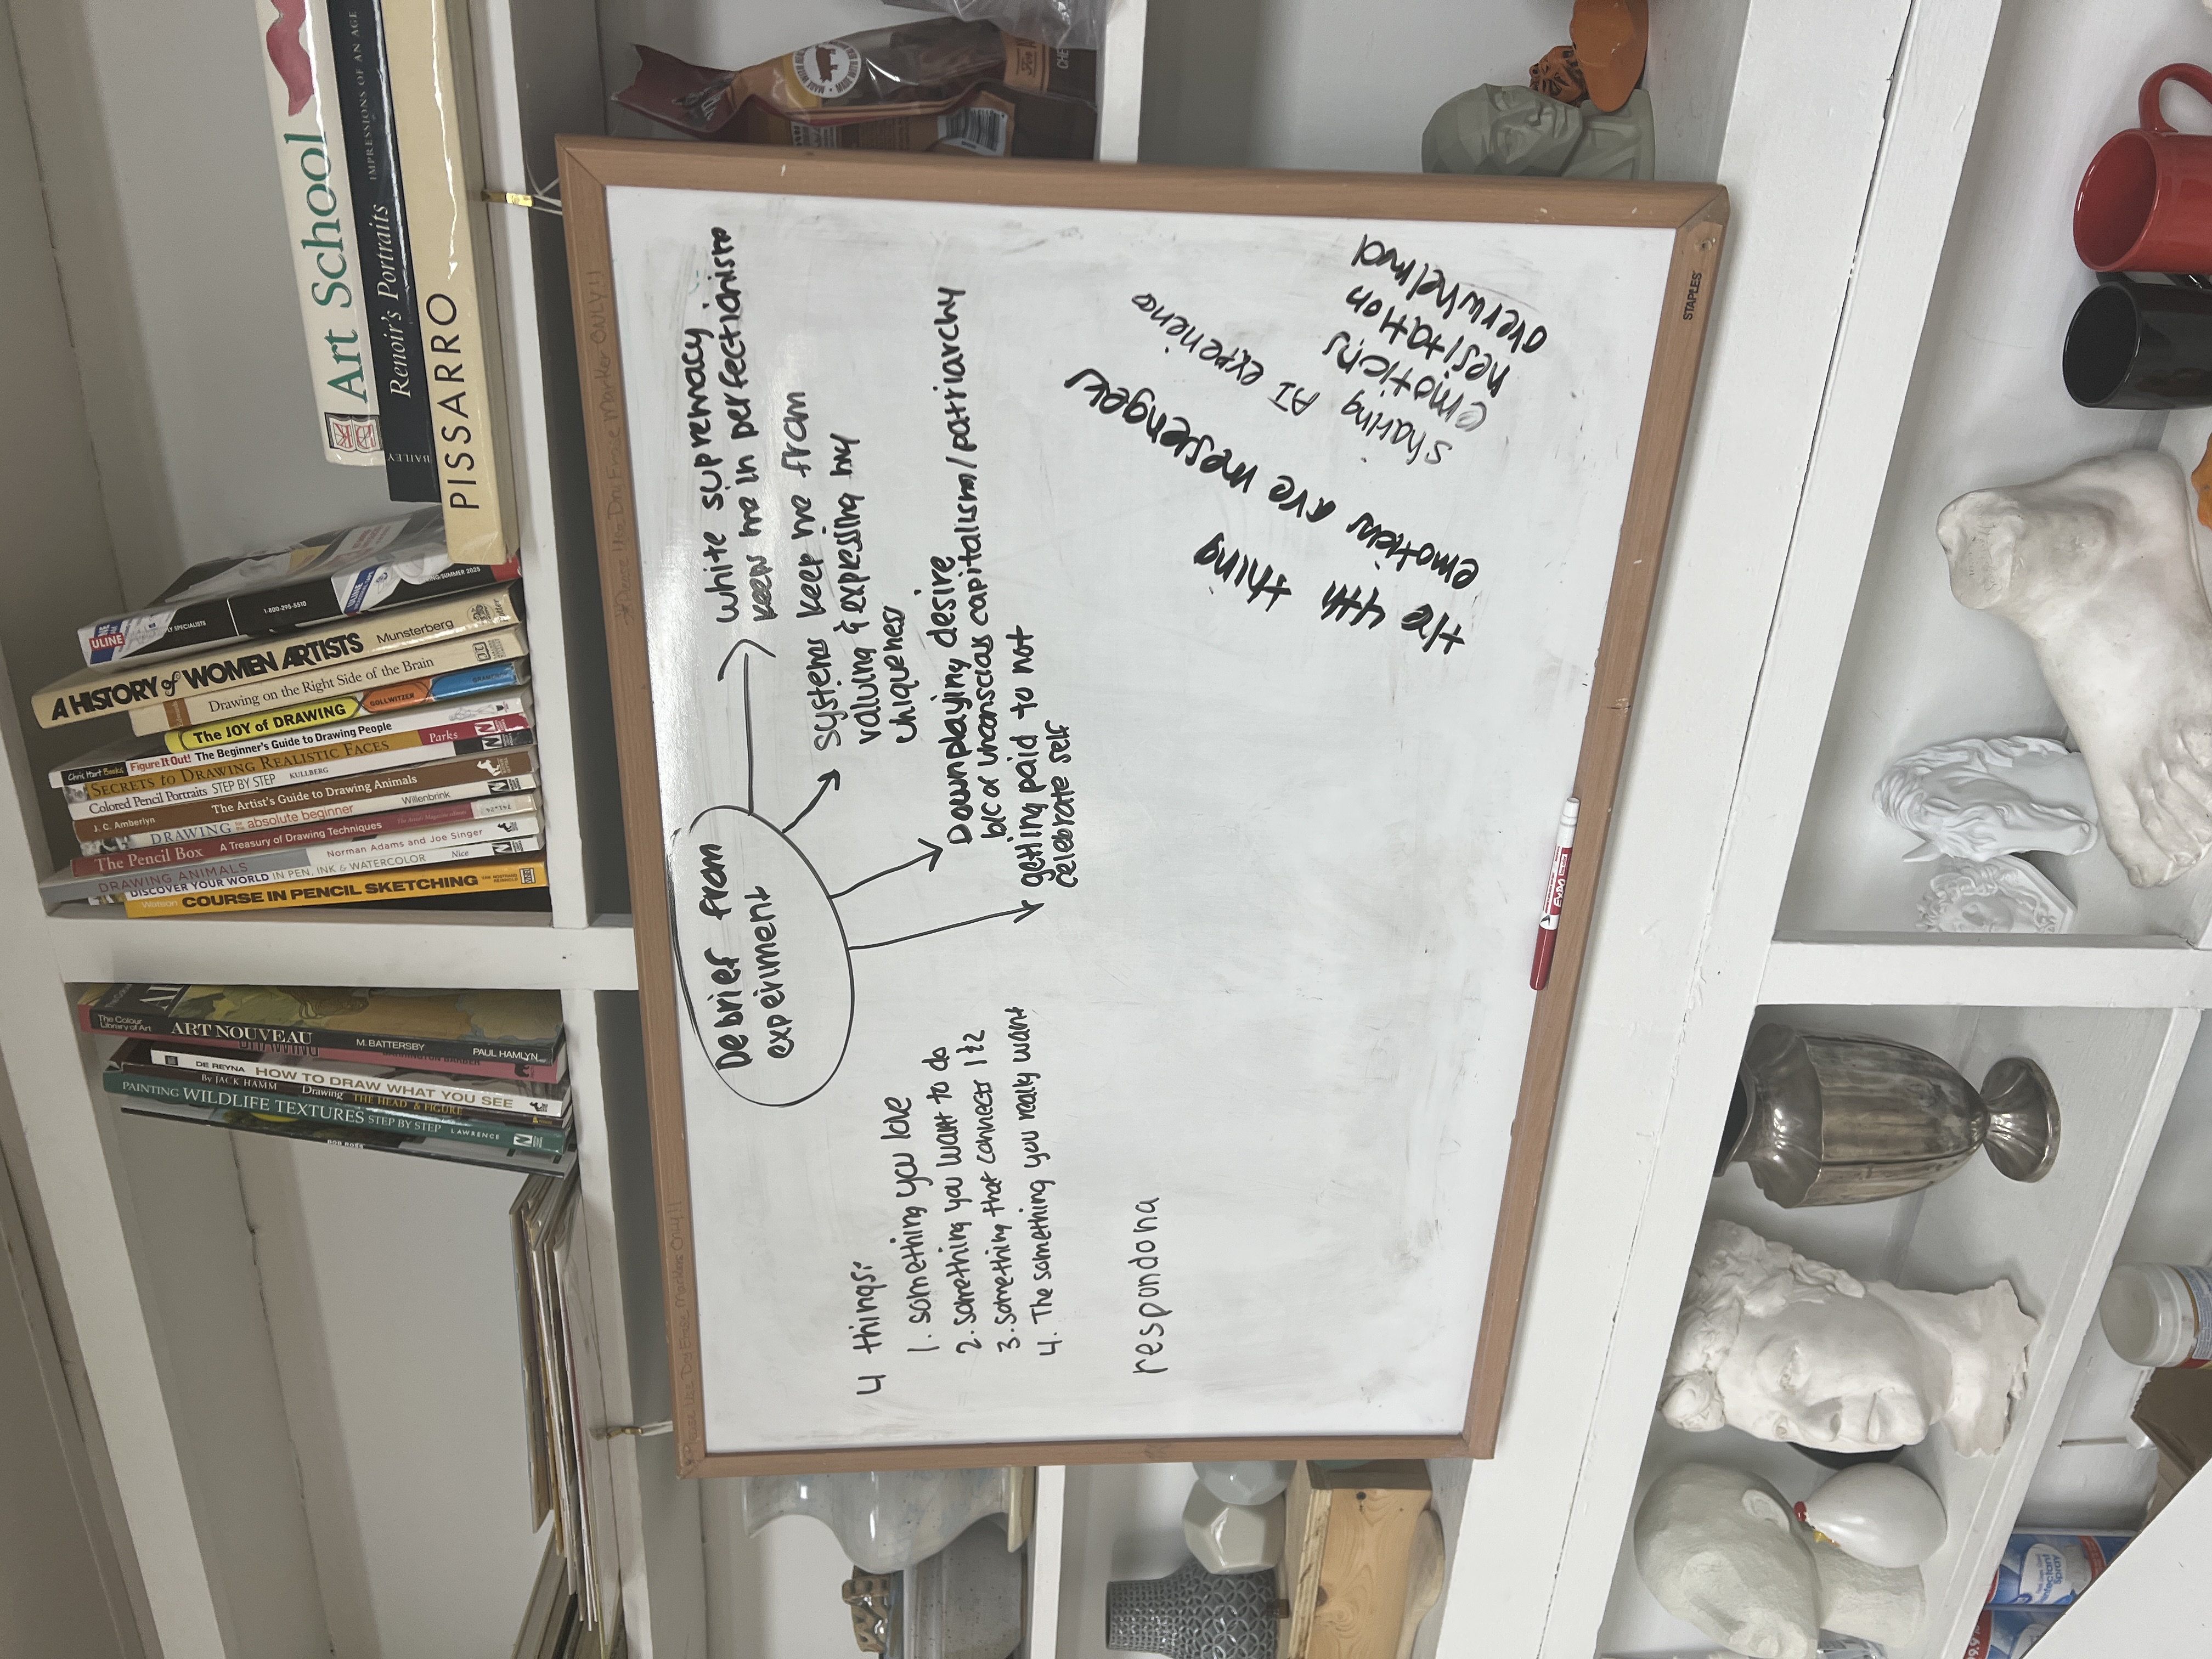 Art School
Renoir's Portraits
IMPRESSIONS OF AN AGE
BAILEY
PISSARRO
ULINE
1-800-295-5510
SPRING/SUMMER 2025
A HISTORY of WOMEN ARTISTS Munsterberg
Drawing on the Right Side of the Brain
The JOY of DRAWING GOLLWITZER
Chris Hart Books Figure It Out! The Beginner's Guide to Drawing People
SECRETS to DRAWING REALISTIC FACES Parks
Colored Pencil Portraits STEP BY STEP KULLBERG
J. C. Amberlyn The Artist's Guide to Drawing Animals
DRAWING absolute beginner Willenbrink
The Pencil Box A Treasury of Drawing Techniques
DRAWING ANIMALS Norman Adams and Joe Singer
DISCOVER YOUR WORLD IN PEN, INK & WATERCOLOR Nice
Watson COURSE IN PENCIL SKETCHING
The Colour
Library of Art
ART NOUVEAU
M. BATTERSBY
PAUL HAMLYN
DE REYNA HOW TO DRAW WHAT YOU SEE
By JACK HAMM Drawing THE HEAD & FIGURE
PAINTING WILDLIFE TEXTURES STEP BY STEP LAWRENCE
BOB ROSS
*Please Use Dry Erase Markers Only!!
*Please Use Dry Erase Marker ONLY!!
Debrief from
experiment
white supremacy
keeps me in perfectionism
systems keep me from
valuing & expressing my
uniqueness
Downplaying desire
b/c of unconscious capitalism/patriarchy
getting paid to not
celebrate self
4 things:
1. something you love
2. something you want to do
3. something that connects 1 & 2
4. The something you really want
respondona
the 4th thing
emotions are messengers
sharing AI experience
emotions
hesitation
overwhelmed
EXPO
STAPLES